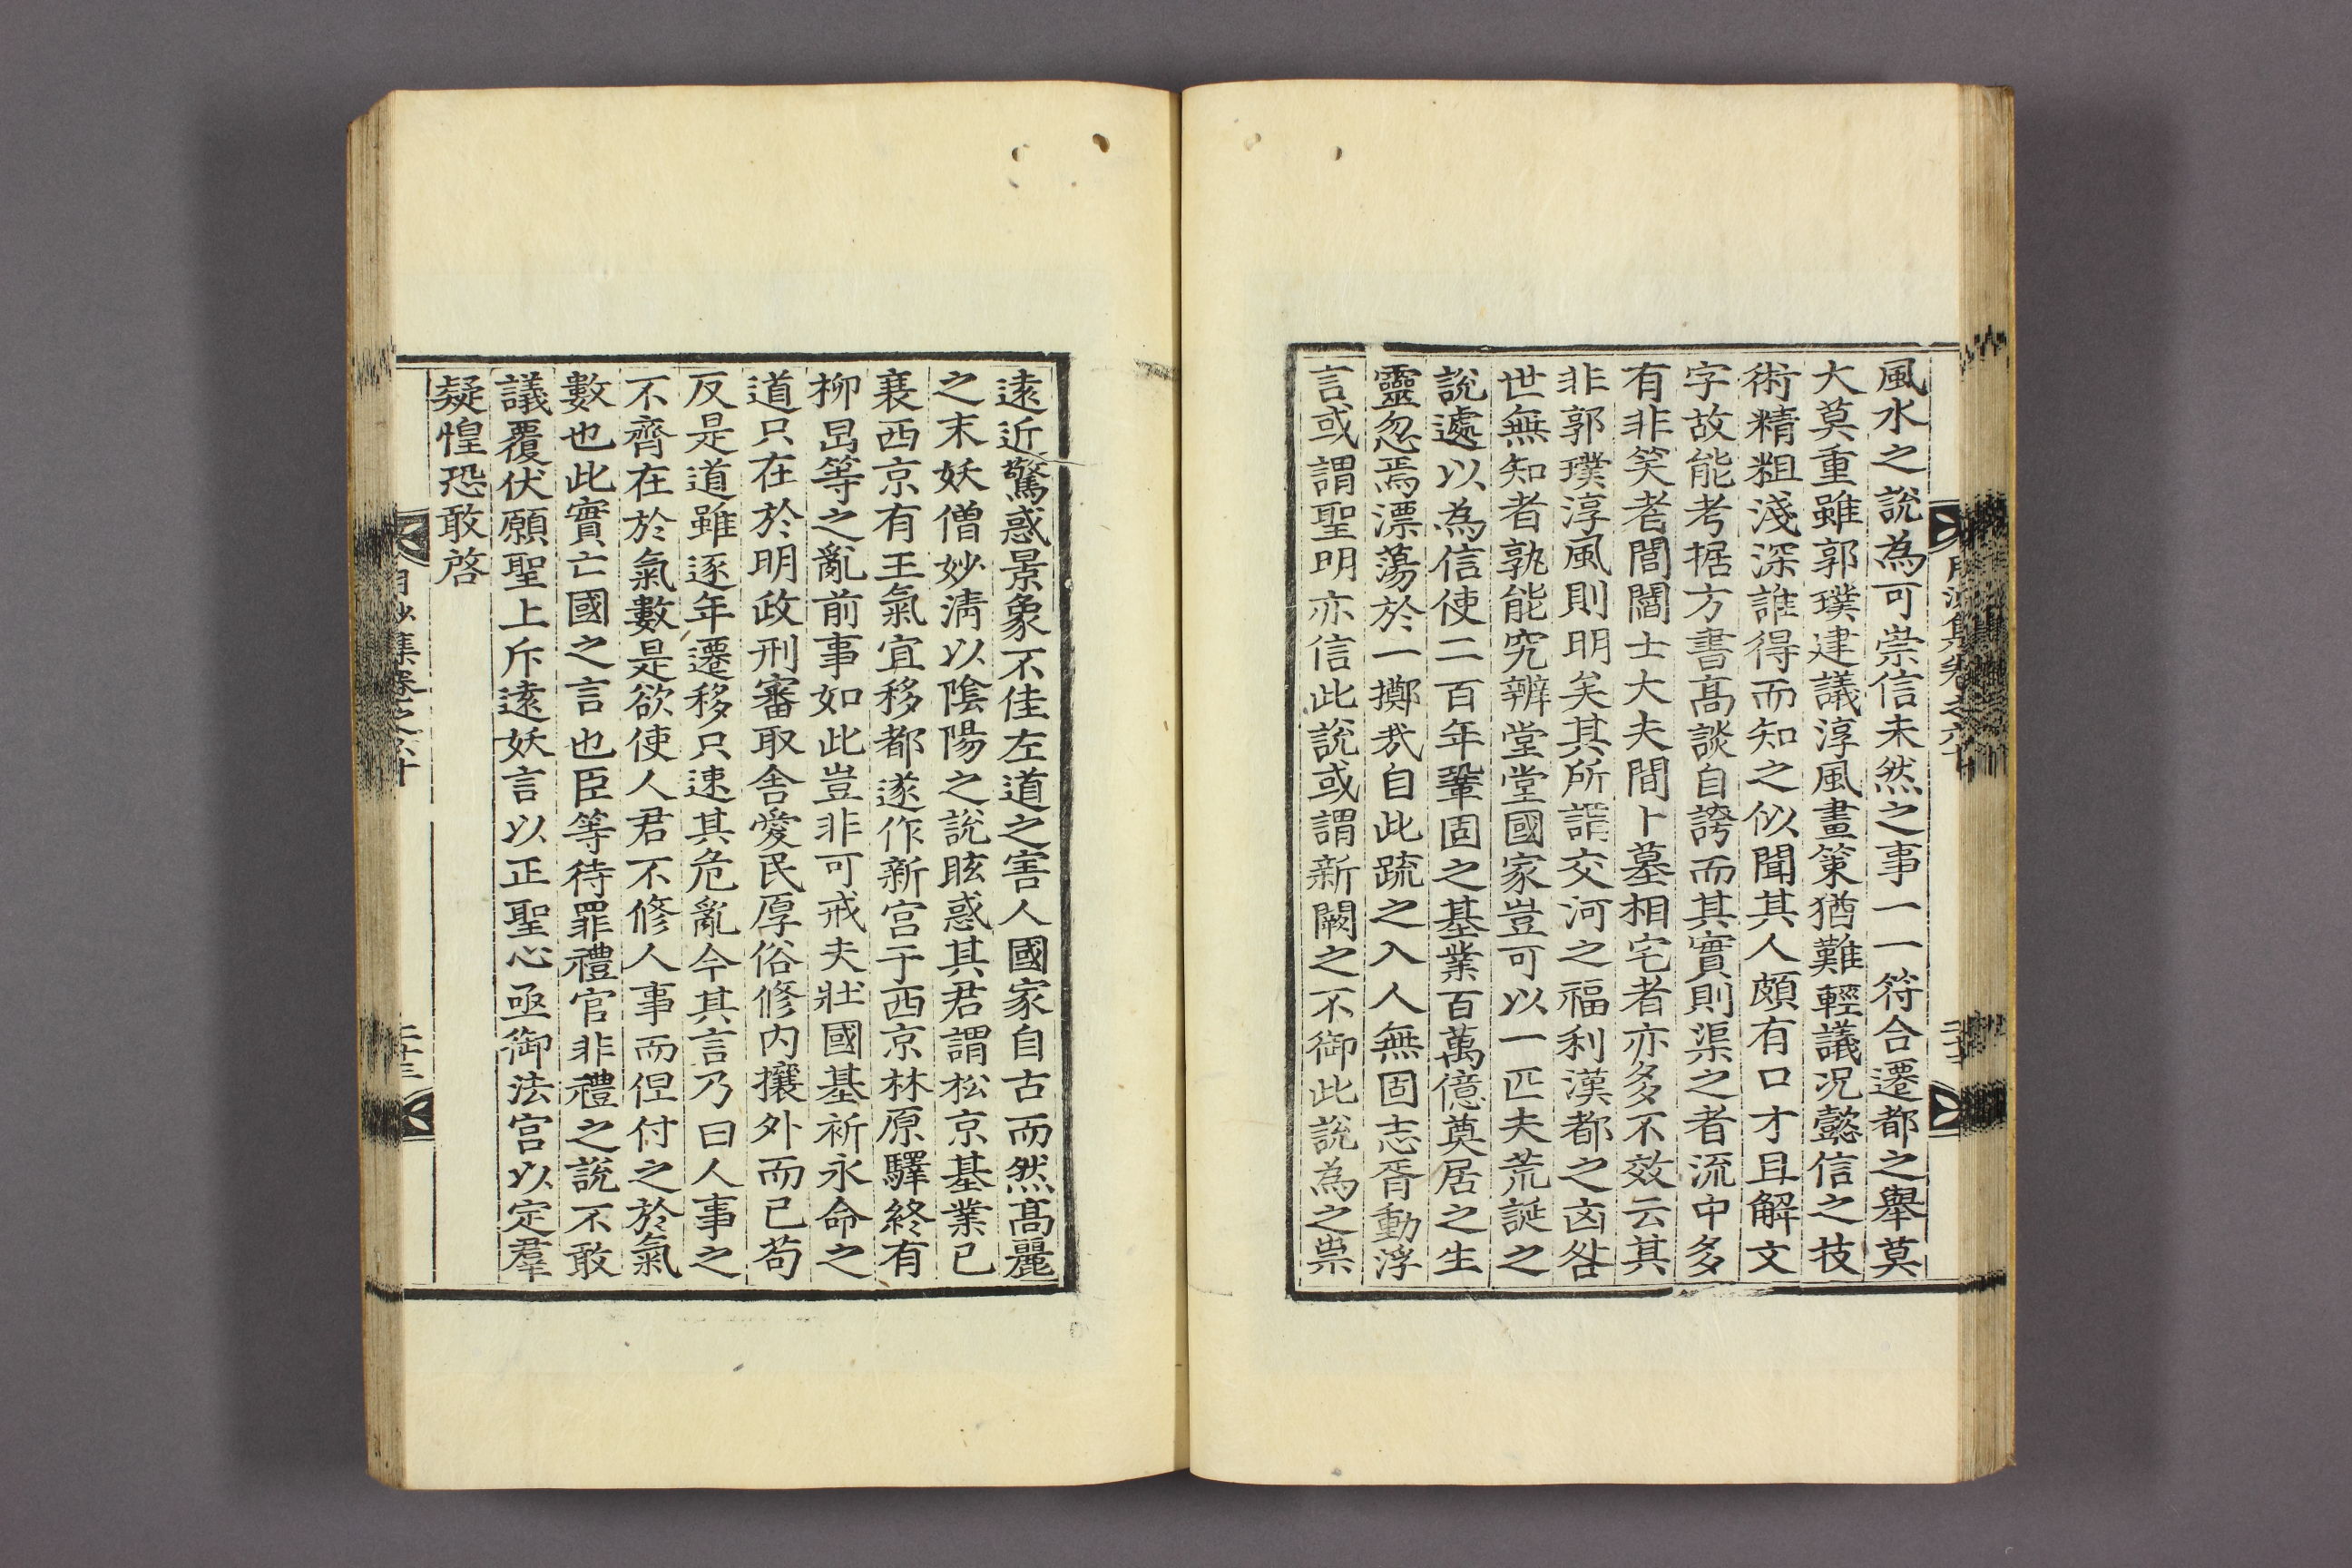 風水之說為可崇信未然之事一一符合遷都之舉莫
大莫重雖郭璞建議淳風畫策猶難輕議况懿信之技
術精粗淺深誰得而知之似聞其人頗有口才且解文
字故能考据方書高談自誇而其實則渠之者流中多
有非笑者閭閻士大夫間卜墓相宅者亦多不效云其
非郭璞淳風則明矣其所謂交河之福利漢都之凶咎
世無知者孰能究辨堂堂國家豈可以一匹夫荒誕之
說處以為信使二百年鞏固之基業百萬億奠居之生
靈忽焉漂蕩於一擲㢤自此疏之入人無固志胥動浮
言或謂聖明亦信此說或謂新闕之不御此說為之祟
遠近驚惑景象不佳左道之害人國家自古而然高麗
之末妖僧妙清以陰陽之說眩惑其君謂松京基業已
衰西京有王氣宜移都遂作新宮于西京林原驛終有
柳旵等之亂前事如此豈非可戒夫壯國基祈永命之
道只在於明政刑審取舍愛民厚俗修內攘外而已苟
反是道雖逐年遷移只速其危亂今其言乃曰人事之
不齊在於氣數是欲使人君不修人事而但付之於氣
數也此實亡國之言也臣等待罪禮官非禮之說不敢
議覆伏願聖上斥遠妖言以正聖心亟御法宮以定羣
疑惶恐敢啓
月沙集卷之六十
二十三